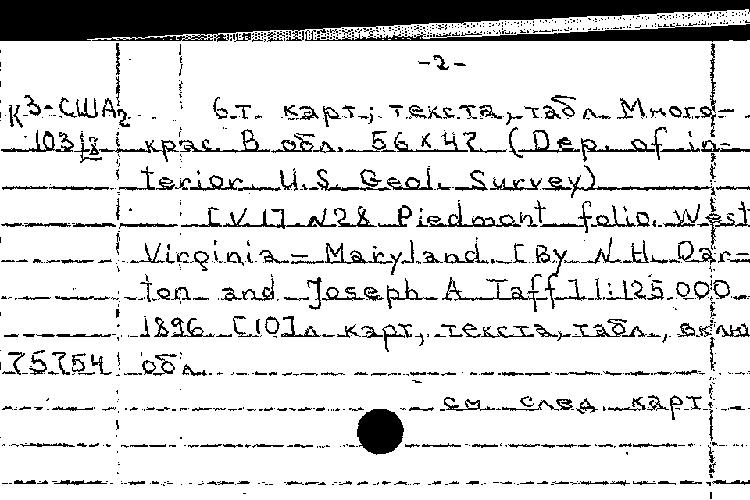 -2-
К3-США2 6.т. карт, текста, табл. Много-
103/8 крас. В обл. 56x47 (Dep. of in-
terior. U.S. Geol. Survey)
[V.1] N28. Piedmont folio. West
Virginia - Maryland. [By N.H. Dar-
ton and Joseph A Taff] 1:125.000
1896. [10]л карт, текста, табл, вклю
75754 обл.
см. след. карт.